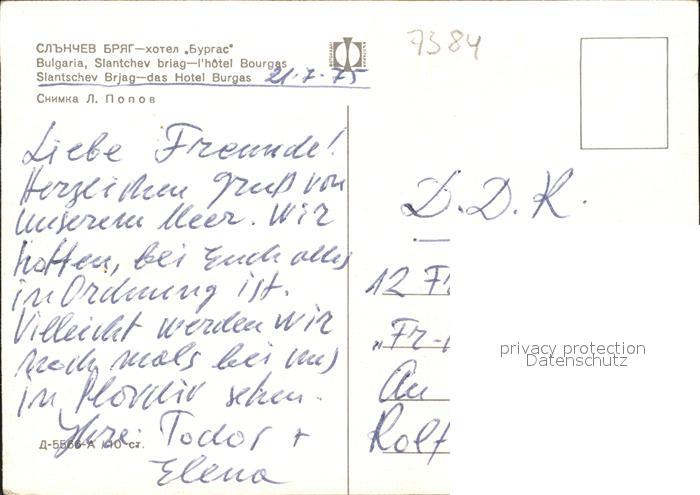 СЛЪНЧЕВ БРЯГ—хотел „Бургас“
Bulgaria, Slantchev briag—l'hôtel Bourgas
Slantschev Brjag—das Hotel Burgas 21.7.75
Снимка Л. Попов
7384
Liebe Freunde!
Herzlichen Gruß von
unserem Meer. Wir
hoffen, bei Euch alles
in Ordnung ist.
Villeicht werden wir
noch mals bei uns
in Plovdiv sehen.
Ihre: Todor +
Elena
Д-5566-А 10 ст.
D.D.R.
12 F
„Fr-
An
Rolf
privacy protection
Datenschutz